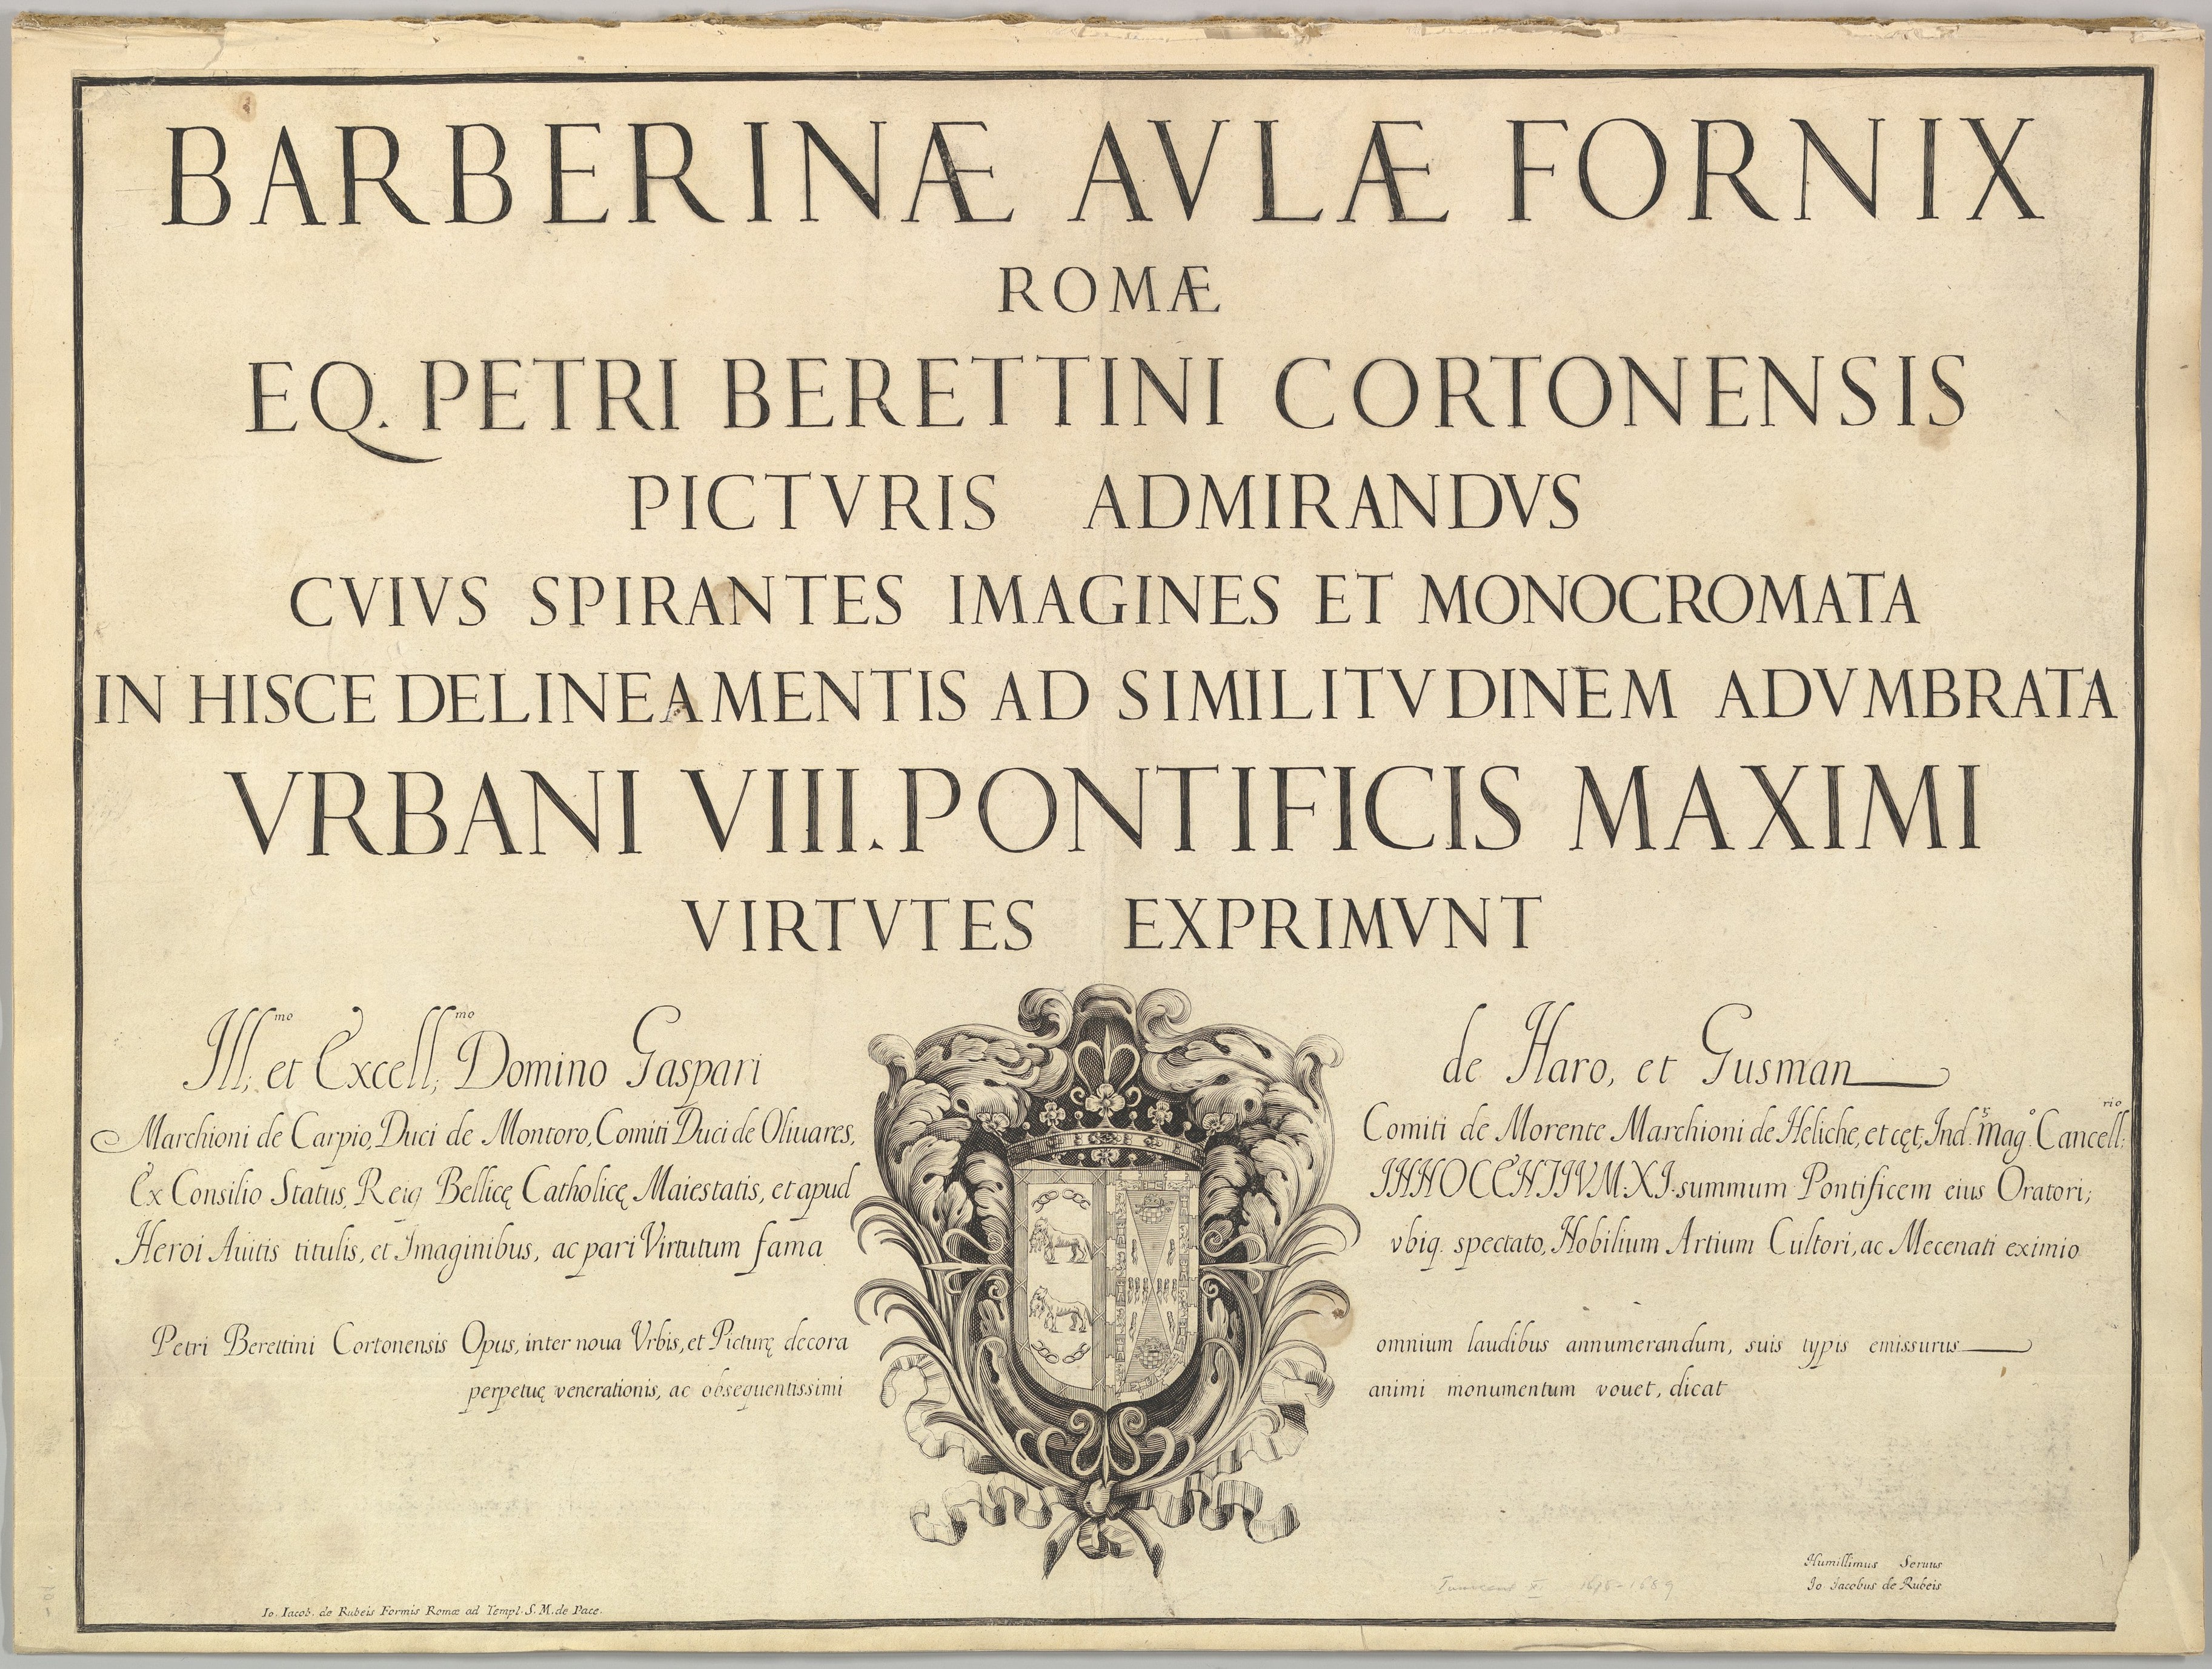 BARBERINÆ AVLÆ FORNIX
ROMÆ
EQ. PETRI BERETTINI CORTONENSIS
PICTVRIS ADMIRANDVS
CVIVS SPIRANTES IMAGINES ET MONOCROMATA
IN HISCE DELINEAMENTIS AD SIMILITVDINEM ADVMBRATA
VRBANI VIII. PONTIFICIS MAXIMI
VIRTVTES EXPRIMVNT
Ill;mo et Excell;mo Domino Gaspari de Haro, et Gusman
Marchioni de Carpio, Duci de Montoro, Comiti Duci de Oliuares, Comiti de Morente Marchioni de Heliche, et cęt; Ind.s mag.o Cancell:rio
Ex Consilio Status, Reig Bellicę Catholicę Maiestatis, et apud INNOCENTIVM.XI. summum Pontificem eius Oratori;
Heroi Auitis titulis, et Imaginibus, ac pari Virtutum fama vbiq. spectato, Nobilium Artium Cultori, ac Mecenati eximio
Petri Berettini Cortonensis Opus, inter noua Vrbis, et Picturę decora omnium laudibus annumerandum, suis typis emissurus
perpetuę venerationis, ac obsequentissimi animi monumentum vouet, dicat
Humillimus Seruus
Io Iacobus de Rubeis
Io. Iacob. de Rubeis Formis Romæ ad Templ. S. M. de Pace.